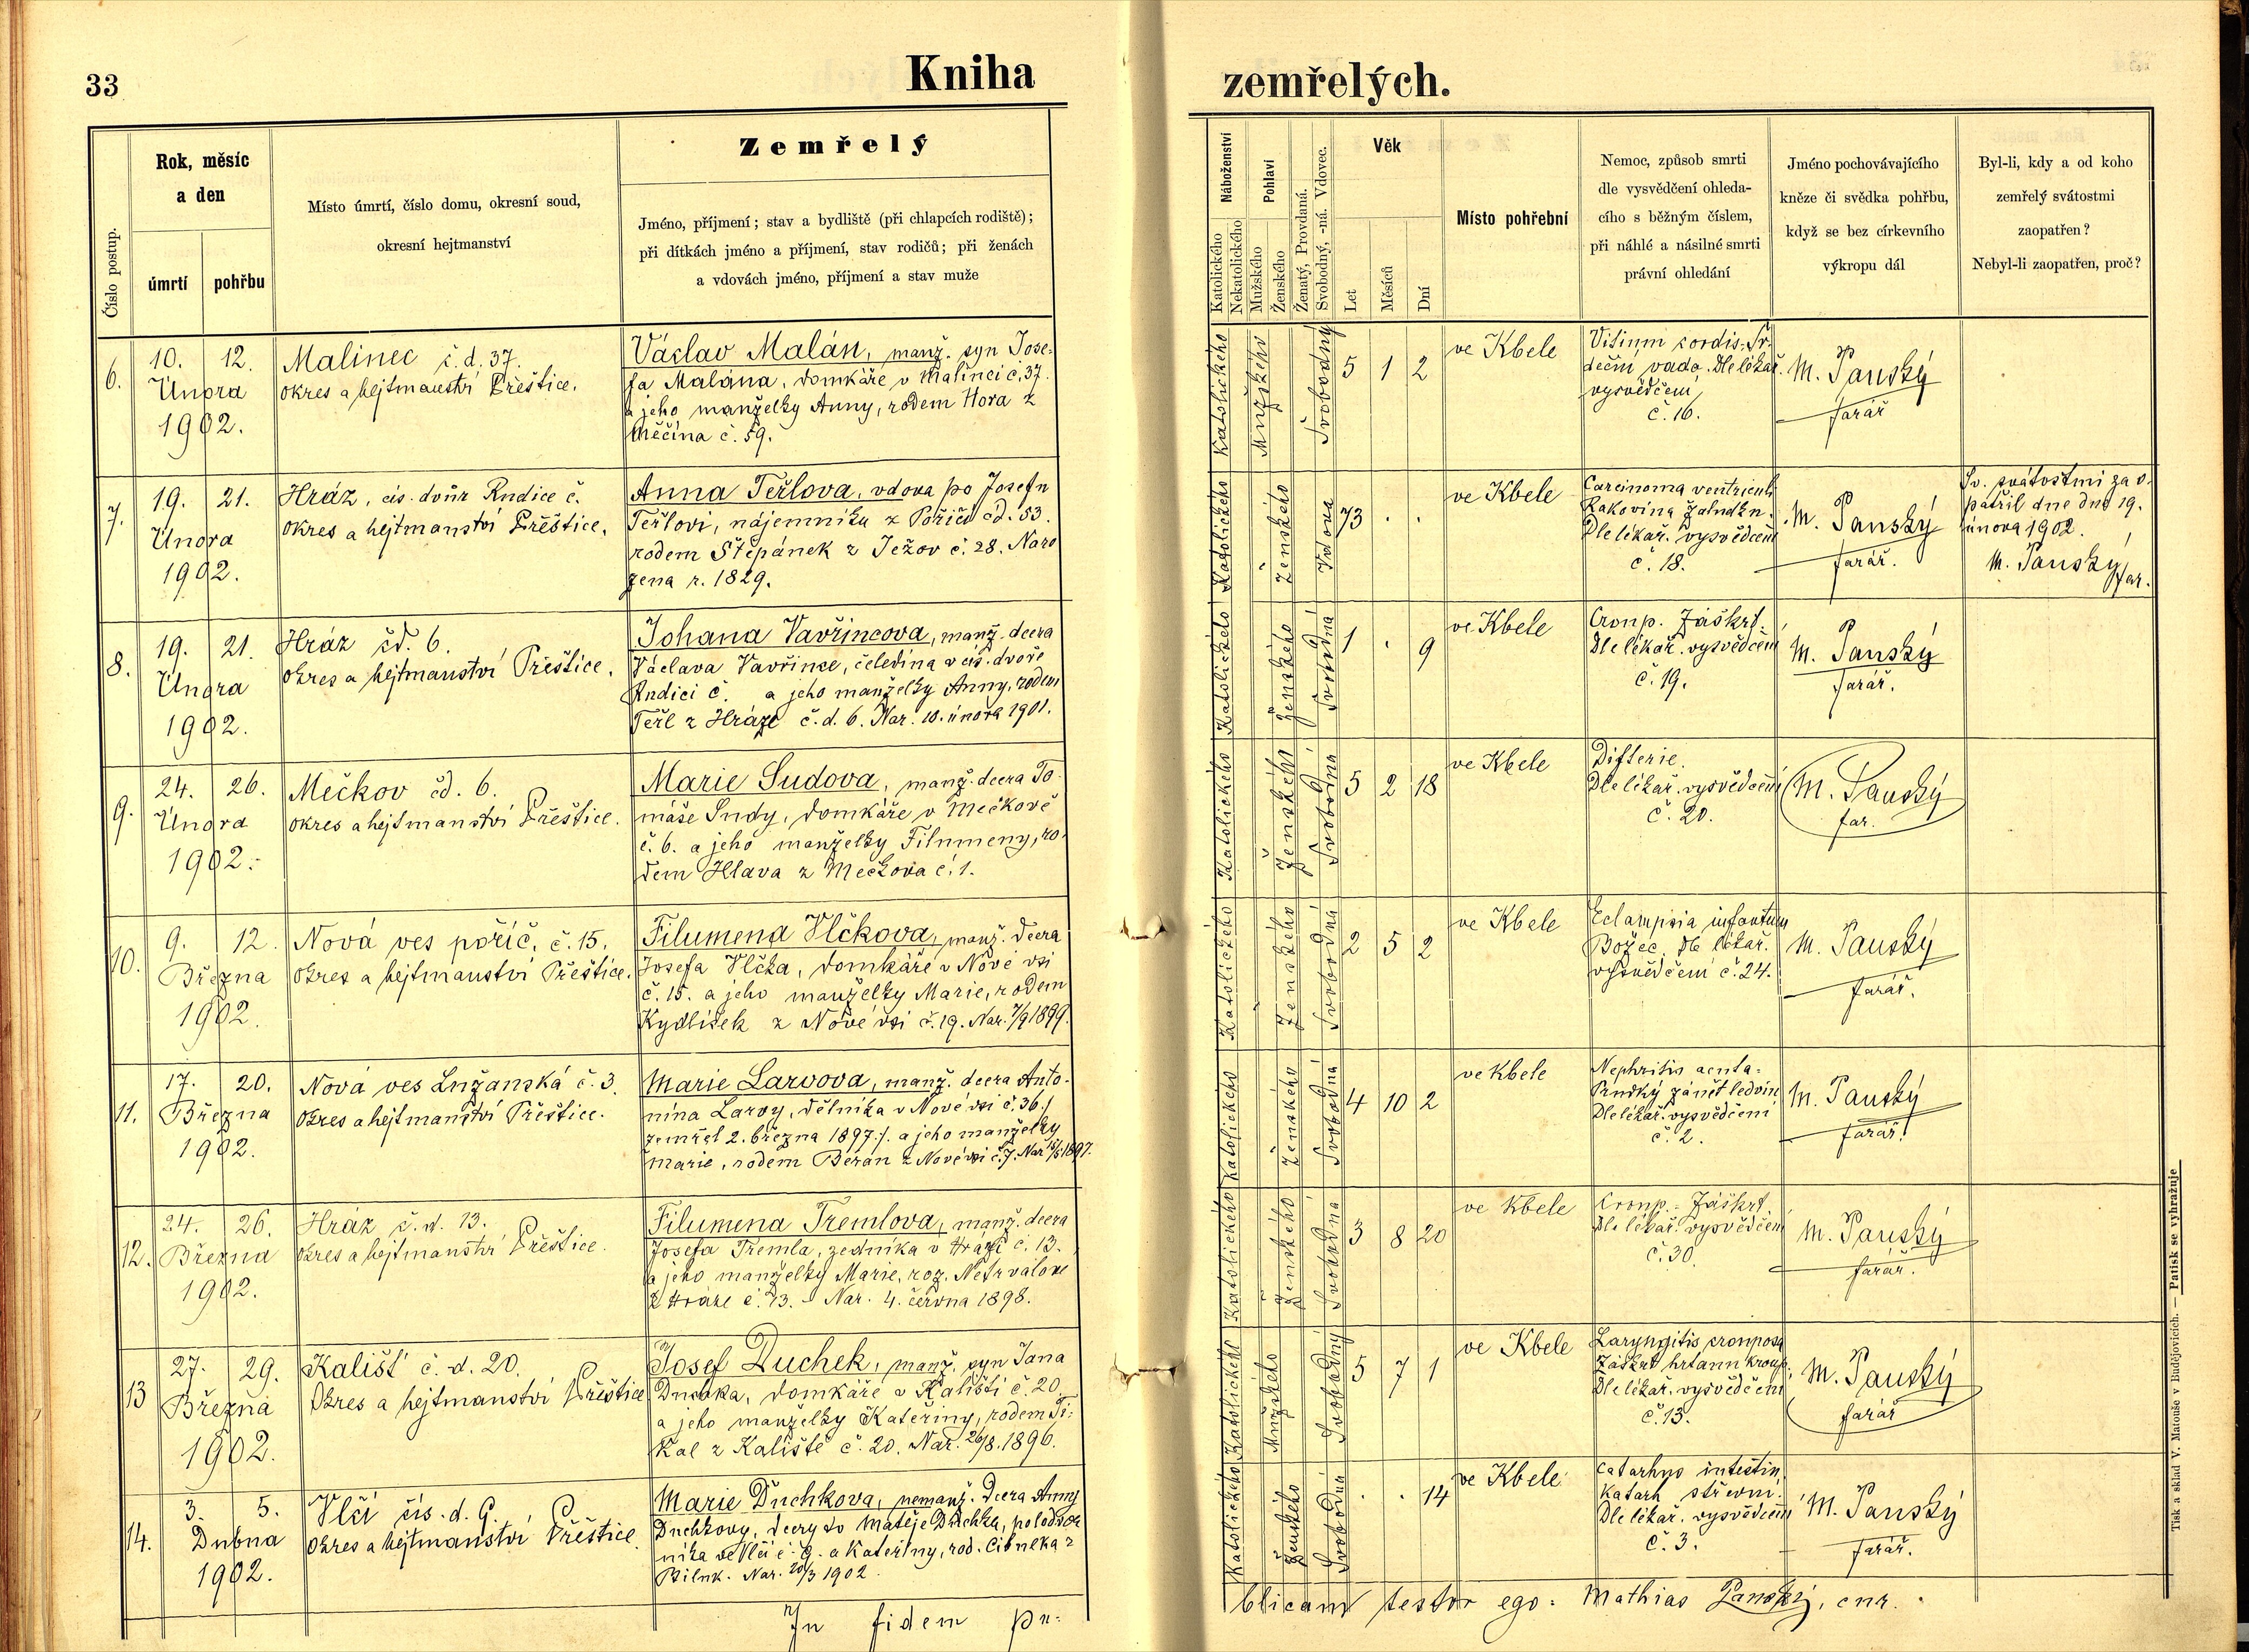 33
Kniha
zemřelých.
Číslo postup.
Rok, měsíc
a den
úmrtí
pohřbu
Místo úmrtí, číslo domu, okresní soud,
okresní hejtmanství
Zemřelý
Jméno, příjmení; stav a bydliště (při chlapcích rodiště);
při dítkách jméno a příjmení, stav rodičů; při ženách
a vdovách jméno, příjmení a stav muže
Náboženství
Katolického
Nekatolického
Pohlaví
Mužského
Ženského
Ženatý, Provdaná.
Svobodný, -ná. Vdovec.
Věk
Let
Měsíců
Dní
Místo pohřební
Nemoc, způsob smrti
dle vysvědčení ohleda-
cího s běžným číslem,
při náhlé a násilné smrti
právní ohledání
Jméno pochovávajícího
kněze či svědka pohřbu,
když se bez církevního
výkropu dál
Byl-li, kdy a od koho
zemřelý svátostmi
zaopatřen?
Nebyl-li zaopatřen, proč?
6.
10. 12.
Února
1902.
Malinec č.d. 37.
okres a hejtmanství Přeštice.
Václav Malán, manž. syn Jose-
fa Malána, domkáře v Malinci č. 37.
a jeho manželky Anny, rodem Hora z
Měčína č. 59.
Katolického
Mužského
Svobodný
5 1 2
ve Kbele
Vitium cordis. Sr-
deční vada. Dle lékař.
vysvědčení
č. 16.
M. Panský
farář
7.
19. 21.
Února
1902.
Hráz, cís. dvůr Rudice č.
okres a hejtmanství Přeštice.
Anna Teřlova, vdova po Josefu
Teřlovi, nájemníku z Poříčí čd. 53.
rodem Štěpánek z Ježov č. 28. Naro
zena r. 1829.
Katolického
Ženského
Vdova
73 . .
ve Kbele
Carcinoma ventriculi
Rakovina žaludku.
Dle lékař. vysvědčení
č. 18.
M. Panský
farář.
Sv. svátostmi zao-
patřil dne dne 19.
února 1902.
M. Panský
far.
8.
19. 21.
Února
1902.
Hráz čd. 6.
okres a hejtmanství Přeštice.
Johana Vavřincova, manž. dcera
Václava Vavřince, čeledína v cís. dvoře
Rudici č. a jeho manželky Anny, rodem
Teřl z Hráze č.d. 6. Nar. 10. února 1901.
Katolického
Ženského
Svobodná
1 . 9
ve Kbele
Croup. Záškrt.
Dle lékař. vysvědčení
č. 19.
M. Panský
farář.
9.
24. 26.
Února
1902.
Mečkov čd. 6.
okres a hejtmanství Přeštice.
Marie Sudova, manž. dcera To-
máše Sudy, domkáře v Mečkově
č. 6. a jeho manželky Filumeny, ro-
dem Hlava z Mečkova č. 1.
Katolického
Ženského
Svobodná
5 2 18
ve Kbele
Difterie.
Dle lékař. vysvědčení
č. 20.
M. Panský
far.
10.
9. 12.
Března
1902.
Nová ves poříč. č. 15.
Okres a hejtmanství Přeštice.
Filumena Vlčkova, manž. dcera
Josefa Vlčka, domkáře v Nové vsi
č. 15. a jeho manželky Marie, rodem
Kydlíček z Nové vsi č. 19. Nar. 7/9 1899.
Katolického
Ženského
Svobodná
2 5 2
ve Kbele
Eclampsia infantum
Božec. Dle lékař.
vysvědčení č. 24.
M. Panský
farář.
11.
17. 20.
Března
1902.
Nová ves Lužanská č. 3.
Okres a hejtmanství Přeštice.
Marie Larvova, manž. dcera Anto-
nína Larvy, dělníka v Nové vsi č. 36./
zemřel 2. března 1897./. a jeho manželky
Marie, rodem Beran z Nové vsi č. 7. Nar. 15/5 1897.
Katolického
Ženského
Svobodná
4 10 2
ve Kbele
Nephritis acuta-
Prudký zánět ledvin
Dle lékař. vysvědčení
č. 2.
M. Panský
farář.
12.
24. 26.
Března
1902.
Hráz č.d. 13.
okres a hejtmanství Přeštice.
Filumena Tremlova, manž. dcera
Josefa Tremla, zedníka v Hrázi č. 13.
a jeho manželky Marie, roz. Netrvalove
z Hráze č. 13. - Nar. 4. června 1898.
Katolického
Ženského
Svobodná
3 8 20
ve Kbele
Croup.- Záškrt.
Dle lékař. vysvědčení
č. 30.
M. Panský
farář.
13
27. 29.
Března
1902.
Kališť č.d. 20.
Okres a hejtmanství Přeštice
Josef Duchek, manž. syn Jana
Duchka, domkáře v Kališti č. 20.
a jeho manželky Kateřiny, rodem Ti-
kal z Kaliště č. 20. Nar. 26/8. 1896.
Katolického
Mužského
Svobodný
5 7 1
ve Kbele
Laryngitis crouposa
Záškrt hrtanu kroup.
Dle lékař. vysvědčení
č. 13.
M. Panský
farář
14.
3. 5.
Dubna
1902.
Vlčí čís. d. 9.
Okres a hejtmanství Přeštice.
Marie Duchkova, nemanž. dcera Anny
Duchkovy, dcery do Matěje Duchka, polodvor
níka ve Vlčí č. 9. a Kateřiny, rod. Cibulka z
Biluk. Nar. 20/3 1902.
Katolického
Ženského
Svobodná
. . 14
ve Kbele
Catarhus intestin.
Katarh střevní.
Dle lékař. vysvědčení
č. 3.
M. Panský
farář.
In fidem pu-
blicam testor ego: Mathias Panský, cur.
Tisk a sklad V. Matouše v Budějovicích. — Patisk se vyhražuje